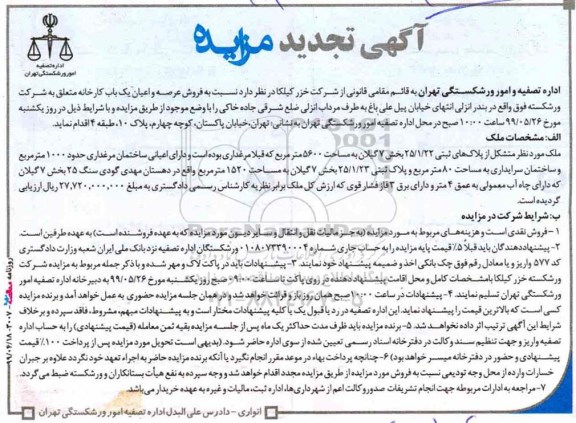 آگهی تجدید مزایده
اداره تصفیه
امور ورشکستگی تهران
اداره تصفیه و امور ورشکستگی تهران به قائم مقامی قانونی از شرکت خزر کیلکا در نظر دارد نسبت به فروش عرصه و اعیان یک باب کارخانه متعلق به شرکت
ورشکسته فوق واقع در بندر انزلی انتهای خیابان پیل علی باغ به طرف مرداب انزلی ضلع شرقی جاده خاکی را با وضع موجود از طریق مزایده و با شرایط ذیل در روز یکشنبه
مورخ ۹۹/۰۵/۲۶ ساعت ۱۰:۰۰ صبح در محل اداره تصفیه امور ورشکستگی تهران به نشانی: تهران، خیابان پاکستان، کوچه چهارم، پلاک ۱۰، طبقه ۴ اقدام نماید.
الف: مشخصات ملک
ملک مورد نظر متشکل از پلاک‌های ثبتی ۲۵/۱/۲۲ بخش ۷ گیلان به مساحت ۵۶۰۰ متر مربع که قبلا مرغداری بوده است و دارای اعیانی ساختمان مرغداری حدود ۱۰۰۰ متر مربع
و ساختمان سرایداری به مساحت ۸۰ متر مربع و پلاک ثبتی ۲۵/۱/۲۳ بخش ۷ گیلان به مساحت ۱۵۲۰ متر مربع واقع در دهستان مهدی گودی سنگ ۲۵ بخش ۷ گیلان
که دارای چاه آب معمولی به عمق ۴ متر و دارای برق ۳ فاز فشار قوی که ارزش کل ملک برابر نظریه کارشناس رسمی دادگستری به مبلغ ۲۷,۷۲۰,۰۰۰,۰۰۰ ریال ارزیابی
گردیده است.
ب: شرایط شرکت در مزایده
۱- فروش نقدی است و هزینه‌های مربوط به مورد مزایده (به جز مالیات نقل و انتقال و سایر دیون مورد مزایده که به عهده فروشنده است) به عهده طرفین است.
۲- پیشنهاددهندگان باید قبلاً ۵٪ قیمت پایه مزایده را به حساب جاری شماره ۰۱۰۸۰۷۳۳۹۰۰۰۴ ورشکستگان اداره تصفیه نزد بانک ملی ایران شعبه وزارت دادگستری
کد ۵۷۷ واریز و یا معادل رقم فوق چک بانکی اخذ و ضمیمه پیشنهاد خود نمایند. ۳- پیشنهادات باید در پاکت لاک و مهر شده و با ذکر جمله مربوط به مزایده شرکت
ورشکسته خزر کیلکا با مشخصات کامل و محل اقامت پیشنهاددهنده بر روی پاکت تا ساعت صبح روز یکشنبه مورخ ۹۹/۰۵/۲۶ به دبیرخانه اداره تصفیه امور
ورشکستگی تهران تسلیم نمایند. ۴- پیشنهادات در ساعت ۱۰:۰۰ صبح همان روز باز و قرائت خواهد شد و در همان جلسه مزایده حضوری به عمل خواهد آمد و برنده مزایده
کسی است که بالاترین قیمت را پیشنهاد نماید. این اداره تصفیه در رد یا قبول یک یا کلیه پیشنهادات مختار است و به پیشنهادات مبهم، مشروط، فاقد سپرده و برخلاف
شرایط این آگهی ترتیب اثر داده نخواهد شد. ۵- برنده مزایده باید ظرف مدت حداکثر یک ماه پس از جلسه مزایده بقیه ثمن معامله (قیمت پیشنهادی) را به حساب اداره
تصفیه واریز و جهت تنظیم سند و کالت در دفترخانه اسناد رسمی تعیین شده از سوی اداره حاضر شود. (بدیهی است تحویل مورد مزایده پس از پرداخت ۱۰۰٪ قیمت
پیشنهادی و حضور در دفترخانه میسر خواهد بود) ۶- چنانچه پرداخت بهاء در موعد مقرر انجام نگیرد یا آنکه برنده مزایده حاضر به اجراء تعهد خود نگردد علاوه بر جبران
خسارات وارده از محل وجه تودیعی نسبت به فروش مورد مزایده از طریق مزایده مجدد اقدام خواهد شد و وجه سپرده به نفع هیأت بستانکاران و ورشکسته ضبط می‌گردد.
۷- مراجعه به ادارات مربوطه جهت انجام تشریفات صدور وکالت اعم از شهرداری‌ها، اداره ثبت، مالیات و غیره به عهده خریدار می‌باشد.
انواری - دادرس علی البدل اداره تصفیه امور ورشکستگی تهران